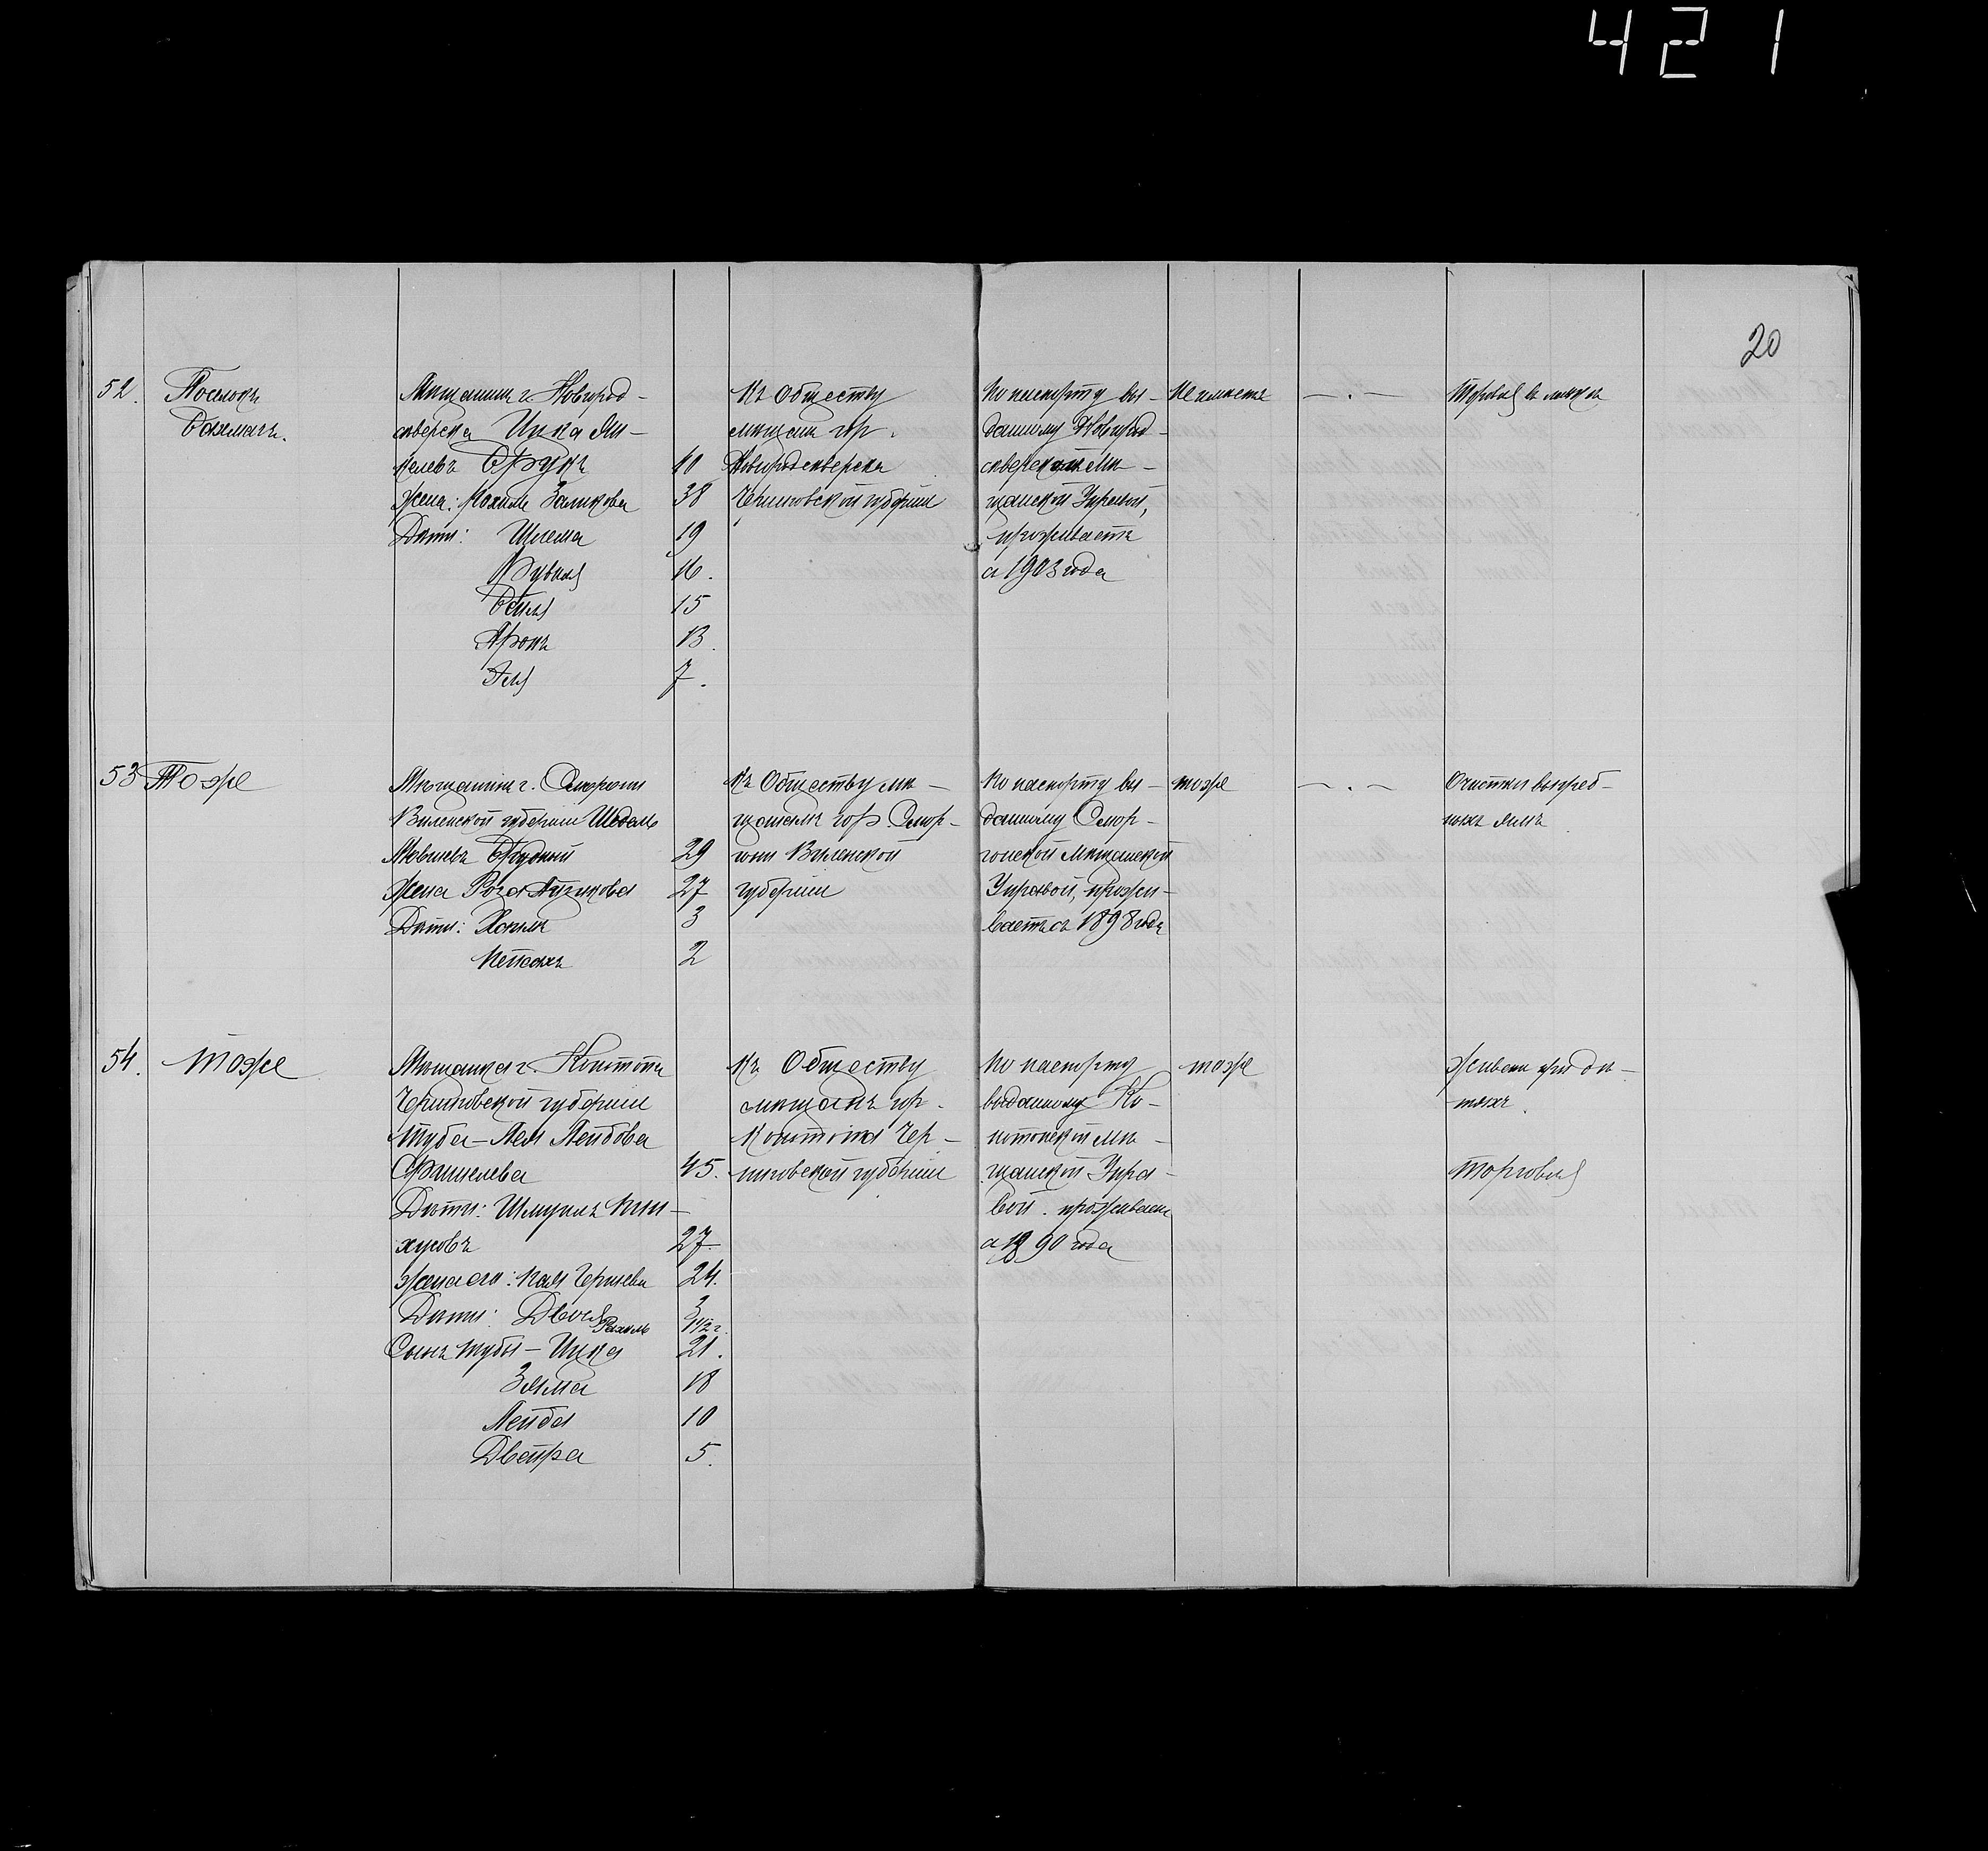 421
20
52. Поселокъ
Бахмачъ.
Мѣщанинъ г. Новгород-
сѣверска Ицка Ян-
келевъ Брукъ 40
Жена: Рохиль Залкова 38
Дѣти: Шлема 19
Рувка 16.
Бейля 15
Аронъ 13.
Эля 7.
Къ обществу
мѣщанъ гор.
Новгородсѣверска
Черниговской губерніи
По паспорту вы-
данному Новгород-
сѣверской Мѣ-
щанской Управой,
проживаетъ
съ 1903 года
Не имѣетъ
— . —
Торговля въ лавкѣ
53 Тоже
Мѣщанинъ г. Сморгони
Виленской губерніи Шевель
Мовшевъ Брудный 29
Жена Роза Айзикова 27
Дѣти: Хаимъ 3
Пейсахъ 2
Къ Обществу мѣ-
щанамъ гор. Смор-
гони Виленской
губерніи
По паспорту вы-
данному Смор-
гонской Мѣщанской
Управой, прожи-
ваетъ съ 1898 года
тоже
— . —
Очистка выгреб-
ныхъ ямъ
54. тоже
Мѣщанка г. Конотопа
Черниговской губерніи
Туба-Лея Лейбова
45.
Дѣти: Шмуилъ Пин-
хусовъ 27.
жена его: Хая 24.
Дѣти: Двося 3
Рахиль 1 1/2 г.
Сынъ Тубы - Ицка 21.
Зяма 18
Лейба 10
Двейра 5.
Къ Обществу
мѣщанъ гор.
Конотопа Чер-
ниговской губерніи
По паспорту
выданному Ко-
нотопской Мѣ-
щанской Упра-
вой. проживаетъ
съ 1890 года
тоже
Живетъ при дѣ-
тяхъ.
Торговля